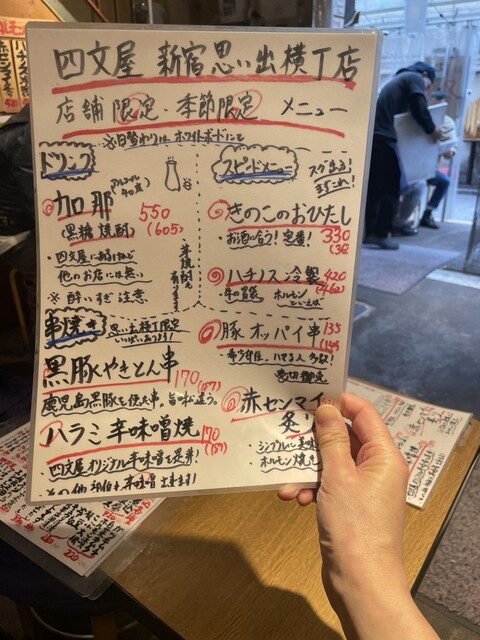 四文屋 新宿思い出横丁店
店舗限定・季節限定 メニュー
※日替わりはホワイトボードにて
ドリンク
加那
アルコール40度
550
(605)
黒糖焼酎
・四文屋に縁があって
他のお店には無い
※酔いすぎ注意
スピードメニュー
スグ出る!
まずこれ!
きのこのおひたし
330
・お酒に合う!定番!
ハチノス冷製
420
(462)
・牛の胃袋
ホルモンといえば
串焼き
思い出横丁限定
いっぱいあります!
黒豚やきとん串
170
(187)
鹿児島黒豚を使た串。旨味が違う。
ハラミ辛味噌焼
170
(187)
・四文屋オリジナル辛味噌を是非!
豚オッパイ串
135
希少部位。ハマる人多数!
売切御免
赤センマイ
炙り
シンプルに美味
ホルモン焼き